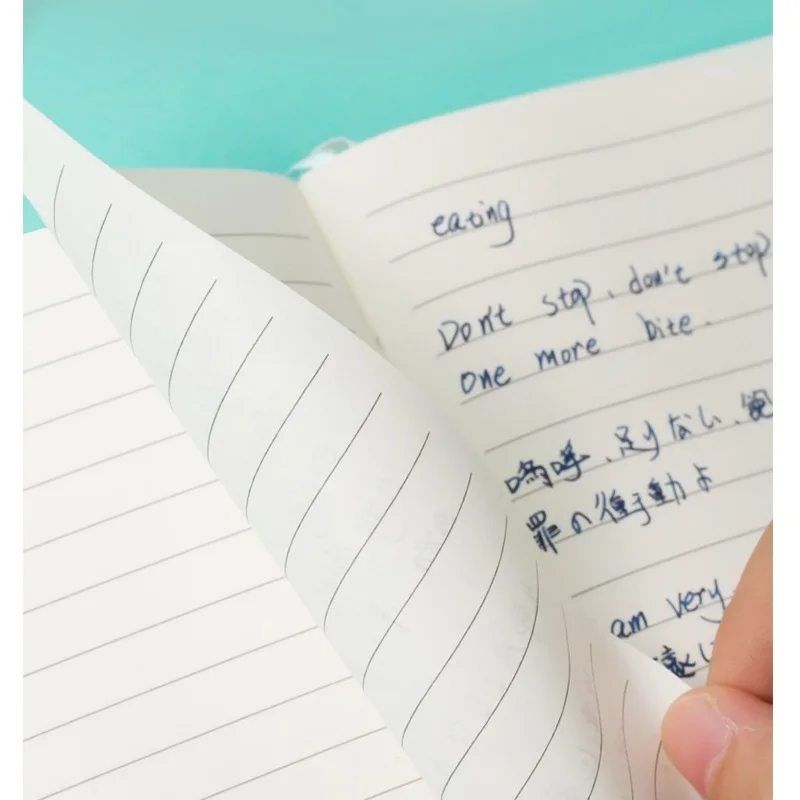 eating
Don't stop, don't stop
One more bite.
嗚呼、足りない、
罪の衝動よ
am very